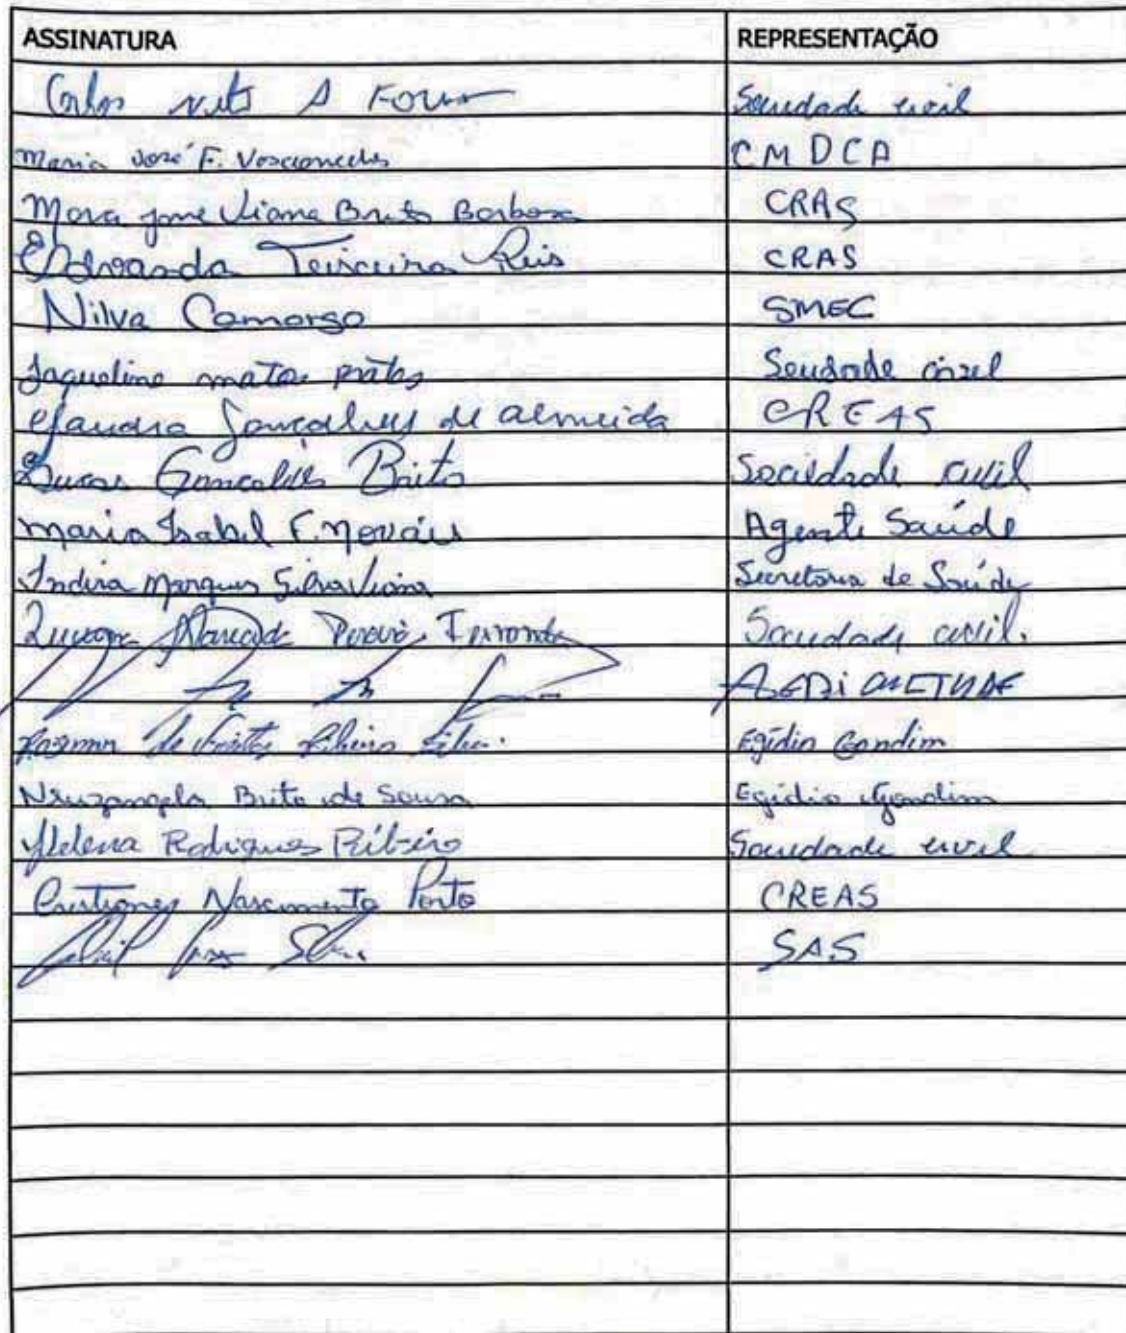 ASSINATURA REPRESENTAÇÃO
Carlos A Sociedade civil
Maria José F. Vasconcelos CMDCA
Mara jane Viana Brito Barbosa CRAS
Edvanda Teixeira Reis CRAS
Nilva Camargo SMEC
Jaqueline matos prates Sociedade civil
Claudia Gonçalves de almeida CREAS
Lucas Goncalves Brito Sociedade civil
maria Isabel F. novais Agente Saúde
Indira Marques Silva Viana Secretaria de Saúde
Sociedade civil.
AGRICULTURA
de Ribeiro Silva. Egídio Gondim
Neuzangela Brito de Sousa Egídio Gondim
Helena Rodrigues Ribeiro Sociedade civil
Nascimento Porto CREAS
SAS